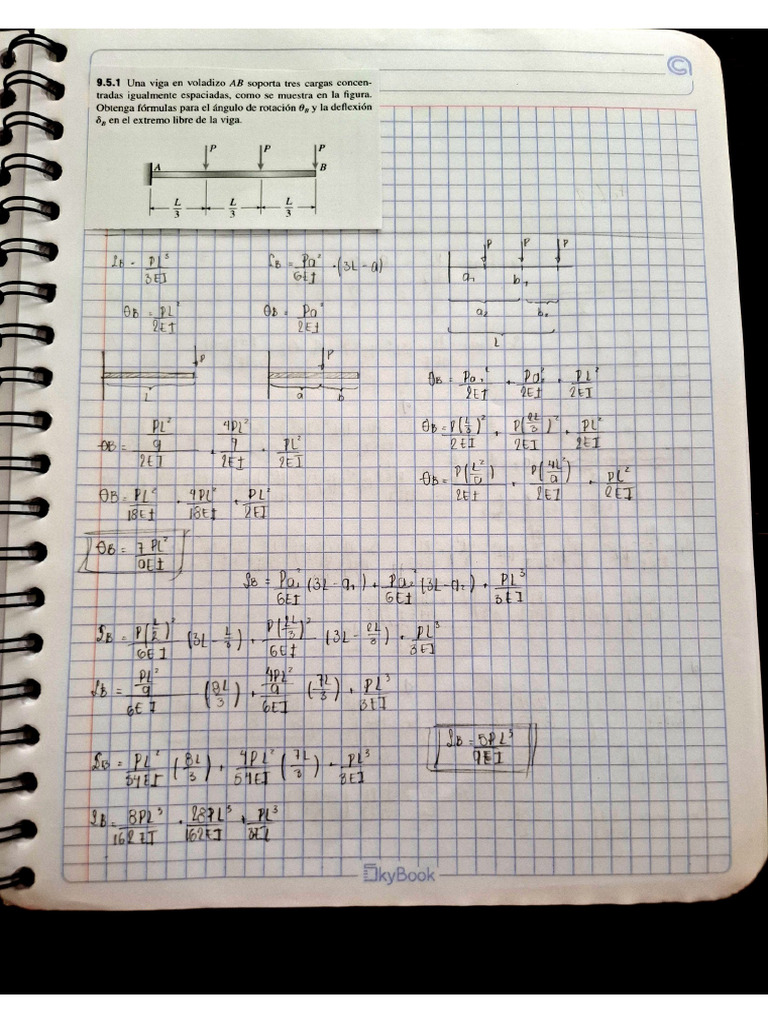 9.5.1 Una viga en voladizo AB soporta tres cargas concen-
tradas igualmente espaciadas, como se muestra en la figura.
Obtenga fórmulas para el ángulo de rotación θ_B y la deflexión
δ_B en el extremo libre de la viga.
P P P
A B
L/3 L/3 L/3
δB = PL³/3EI
δB = Pa²/6EI · (3L-a)
P P P
a₁ b₁
a₂ b₂
L
θB = PL²/2EI
θB = Pa²/2EI
P
L
P
a b
θB = Pa₁²/2EI + Pa₂²/2EI + PL²/2EI
θB = P(L/3)²/2EI + P(2L/3)²/2EI + PL²/2EI
θB = P(L²/9)/2EI + P(4L²/9)/2EI + PL²/2EI
θB = (PL²/9)/2EI + (4PL²/9)/2EI + PL²/2EI
θB = PL²/18EI + 4PL²/18EI + PL²/2EI
θB = 7PL²/9EI
δB = Pa₁²/6EI (3L-a₁) + Pa₂²/6EI (3L-a₂) + PL³/3EI
δB = P(L/2)²/6EI (3L - L/3) + P(2L/3)²/6EI (3L - 2L/3) + PL³/3EI
δB = (PL²/9)/6EI (8L/3) + (4PL²/9)/6EI (7L/3) + PL³/3EI
δB = PL²/54EI (8L/3) + 4PL²/54EI (7L/3) + PL³/3EI
δB = 8PL³/162EI + 28PL³/162EI + PL³/3EI
δB = 5PL³/9EI
SkyBook